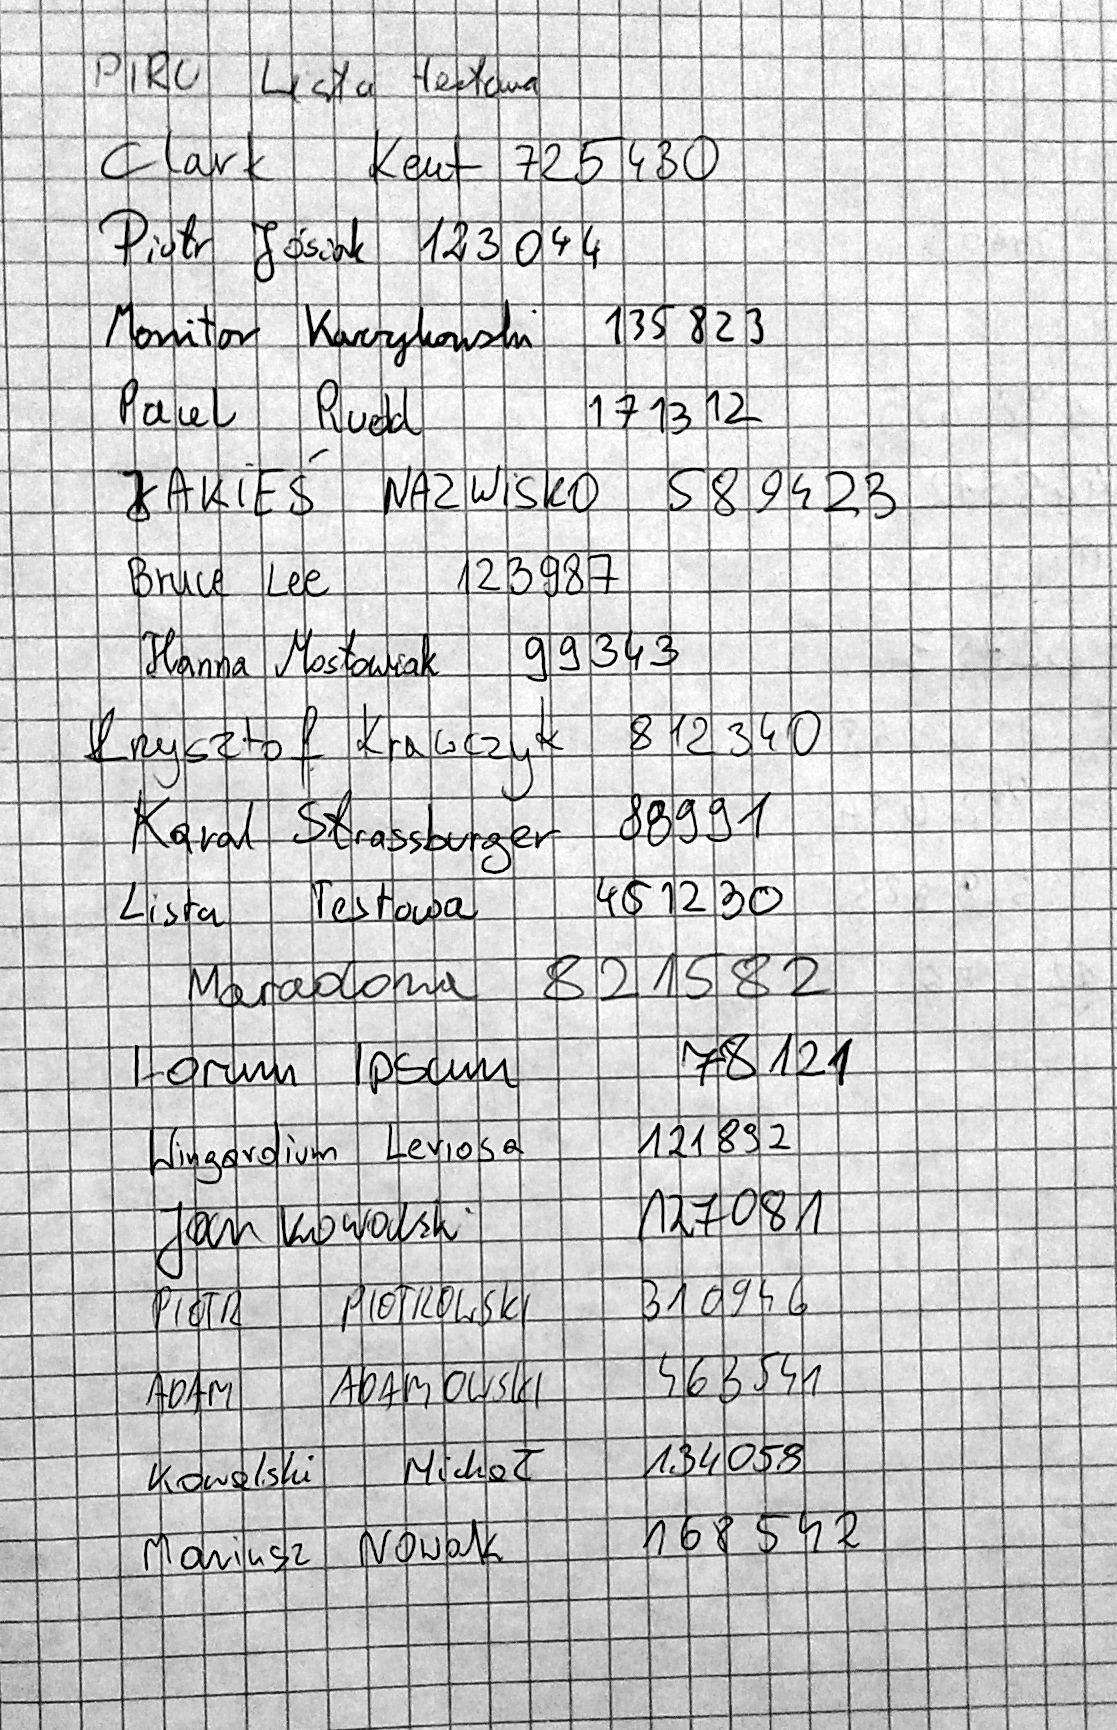 PIRO Lista testowa
Clark Kent 725430
Piotr Jósiak 123044
Monitor Karzykowski 135823
Paul Rudd 171312
JAKiEŚ NAZWiSKO 589423
Bruce Lee 123987
Hanna Mostowiak 99343
Krzysztof Krawczyk 812340
Karol Strassburger 88991
Lista Testowa 451230
Maradona 821582
Lorum Ipsum 78121
Wingardium Leviosa 121892
Jan Kowalski 127081
PIOTR PIOTROWSKI 310946
ADAM ADAMOWSKI 463541
Kowalski Michał 134058
Mariusz Nowak 168542